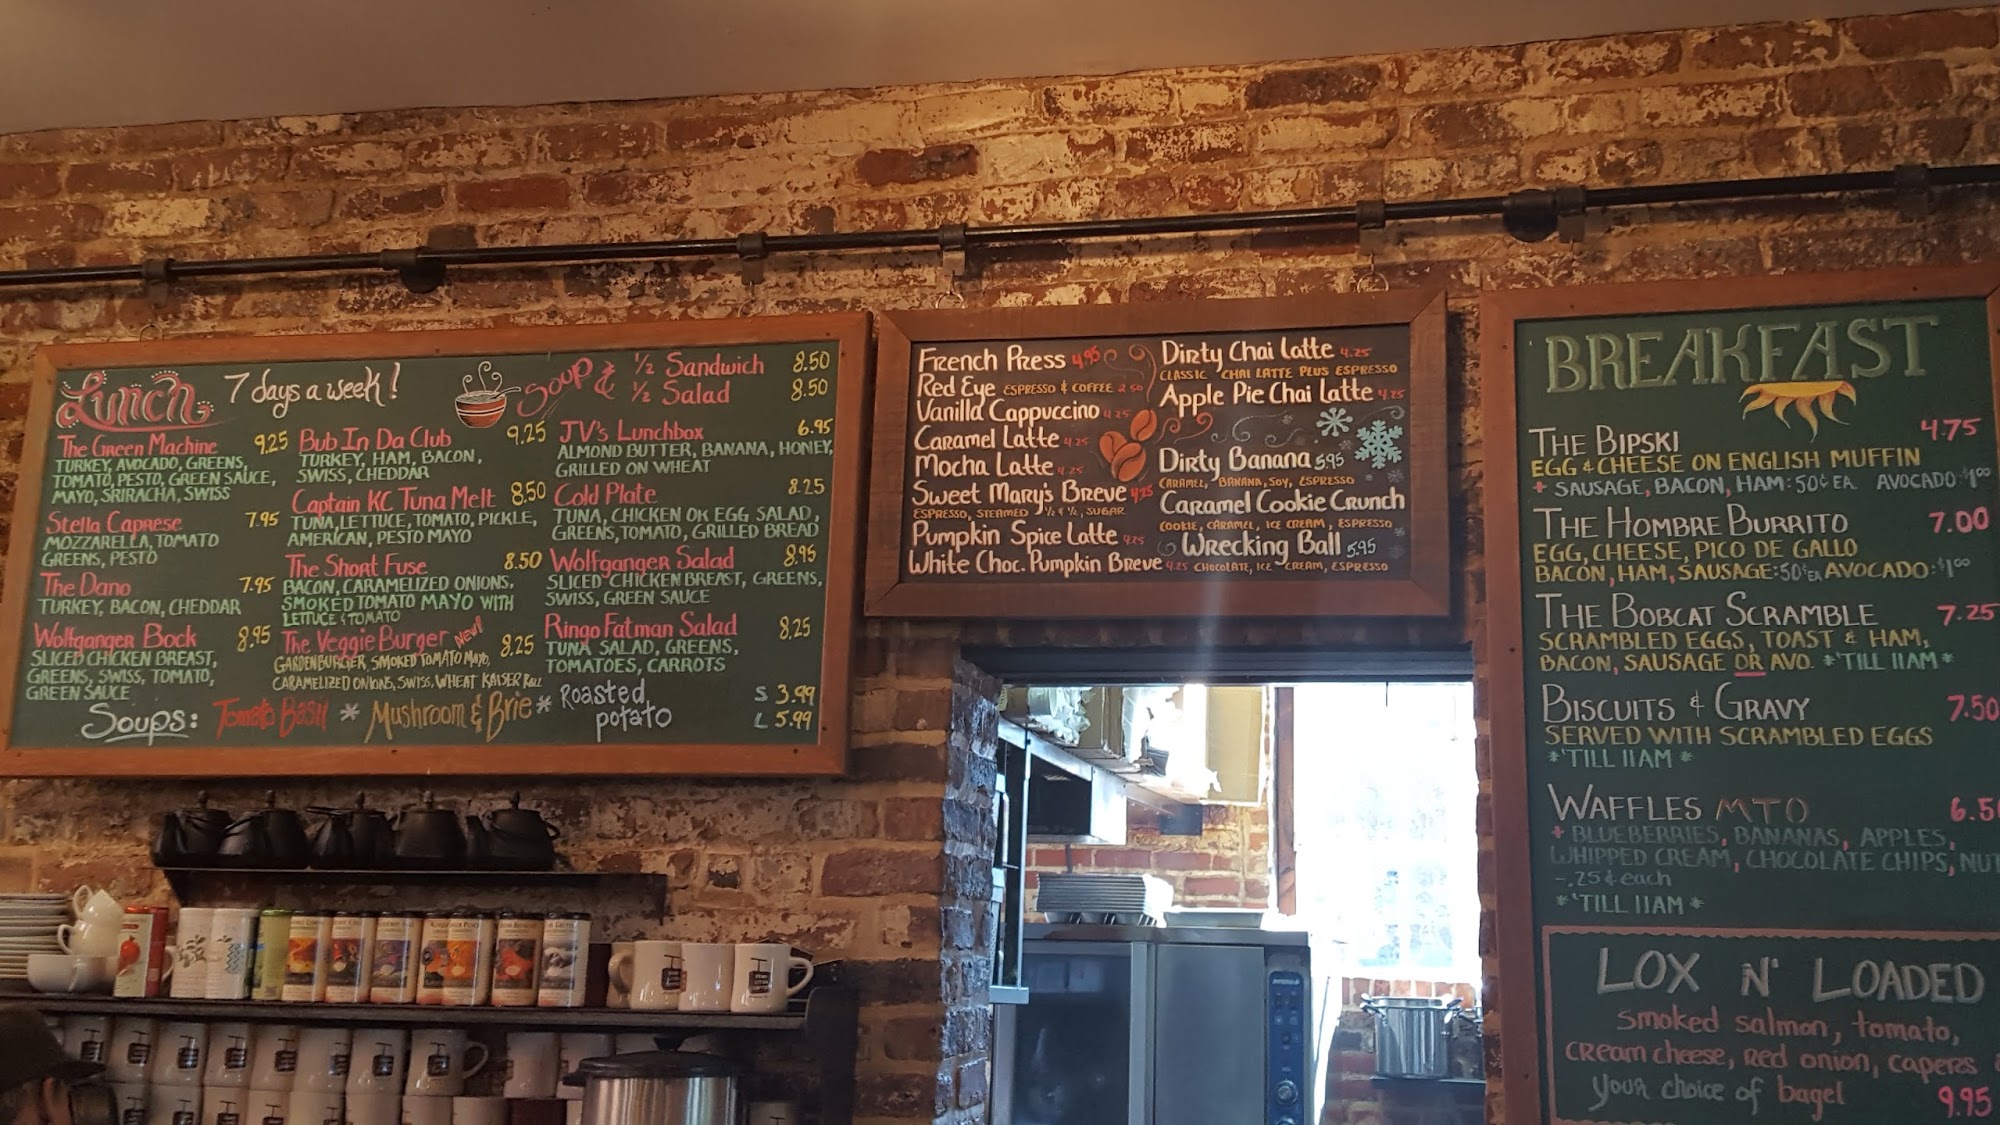 Lunch 7 days a week!
Soup & ½ Sandwich 8.50
½ Salad 8.50
The Green Machine 9.25
TURKEY, AVOCADO, GREENS,
TOMATO, PESTO, GREEN SAUCE,
MAYO, SRIRACHA, SWISS
Stella Caprese 7.95
MOZZARELLA, TOMATO
GREENS, PESTO
The Dano 7.95
TURKEY, BACON, CHEDDAR
Wolfganger Bock 8.95
SLICED CHICKEN BREAST,
GREENS, SWISS, TOMATO,
GREEN SAUCE
Bub In Da Club 9.25
TURKEY, HAM, BACON,
SWISS, CHEDDAR
Captain KC Tuna Melt 8.50
TUNA, LETTUCE, TOMATO, PICKLE,
AMERICAN, PESTO MAYO
The Short Fuse 8.50
BACON, CARAMELIZED ONIONS,
SMOKED TOMATO MAYO WITH
LETTUCE & TOMATO
The Veggie Burger New! 8.25
GARDENBURGER, SMOKED TOMATO MAYO,
CARAMELIZED ONIONS, SWISS, WHEAT KAISER ROLL
JV's Lunchbox 6.95
ALMOND BUTTER, BANANA, HONEY,
GRILLED ON WHEAT
Cold Plate 8.25
TUNA, CHICKEN OR EGG SALAD,
GREENS, TOMATO, GRILLED BREAD
Wolfganger Salad 8.95
SLICED CHICKEN BREAST, GREENS,
SWISS, GREEN SAUCE
Ringo Fatman Salad 8.25
TUNA SALAD, GREENS,
TOMATOES, CARROTS
Soups: Tomato Basil * Mushroom & Brie * Roasted
potato
S 3.99
L 5.99
French Press 4.95
Red Eye ESPRESSO & COFFEE 2.50
Vanilla Cappuccino 4.25
Caramel Latte 4.25
Mocha Latte 4.25
Sweet Mary's Breve 4.25
ESPRESSO, STEAMED ½ & ½, SUGAR
Pumpkin Spice Latte 4.25
White Choc. Pumpkin Breve 4.25
Dirty Chai Latte 4.25
CLASSIC CHAI LATTE PLUS ESPRESSO
Apple Pie Chai Latte 4.25
Dirty Banana 5.95
CARAMEL, BANANA, SOY, ESPRESSO
Caramel Cookie Crunch
COOKIE, CARAMEL, ICE CREAM, ESPRESSO
Wrecking Ball 5.95
CHOCOLATE, ICE CREAM, ESPRESSO
BREAKFAST
THE BIPSKI 4.75
EGG & CHEESE ON ENGLISH MUFFIN
+ SAUSAGE, BACON, HAM: 50¢ EA. AVOCADO $1.00
THE HOMBRE BURRITO 7.00
EGG, CHEESE, PICO DE GALLO
BACON, HAM, SAUSAGE: 50¢ EA AVOCADO: $1.00
THE BOBCAT SCRAMBLE 7.25
SCRAMBLED EGGS, TOAST & HAM,
BACON, SAUSAGE OR AVO. *'TILL 11AM*
BISCUITS & GRAVY 7.50
SERVED WITH SCRAMBLED EGGS
*'TILL 11AM*
WAFFLES MTO 6.5
+ BLUEBERRIES, BANANAS, APPLES,
WHIPPED CREAM, CHOCOLATE CHIPS, NUT
- .25¢ each
*'TILL 11AM*
LOX N' LOADED
smoked salmon, tomato,
cream cheese, red onion, capers &
your choice of bagel
9.95